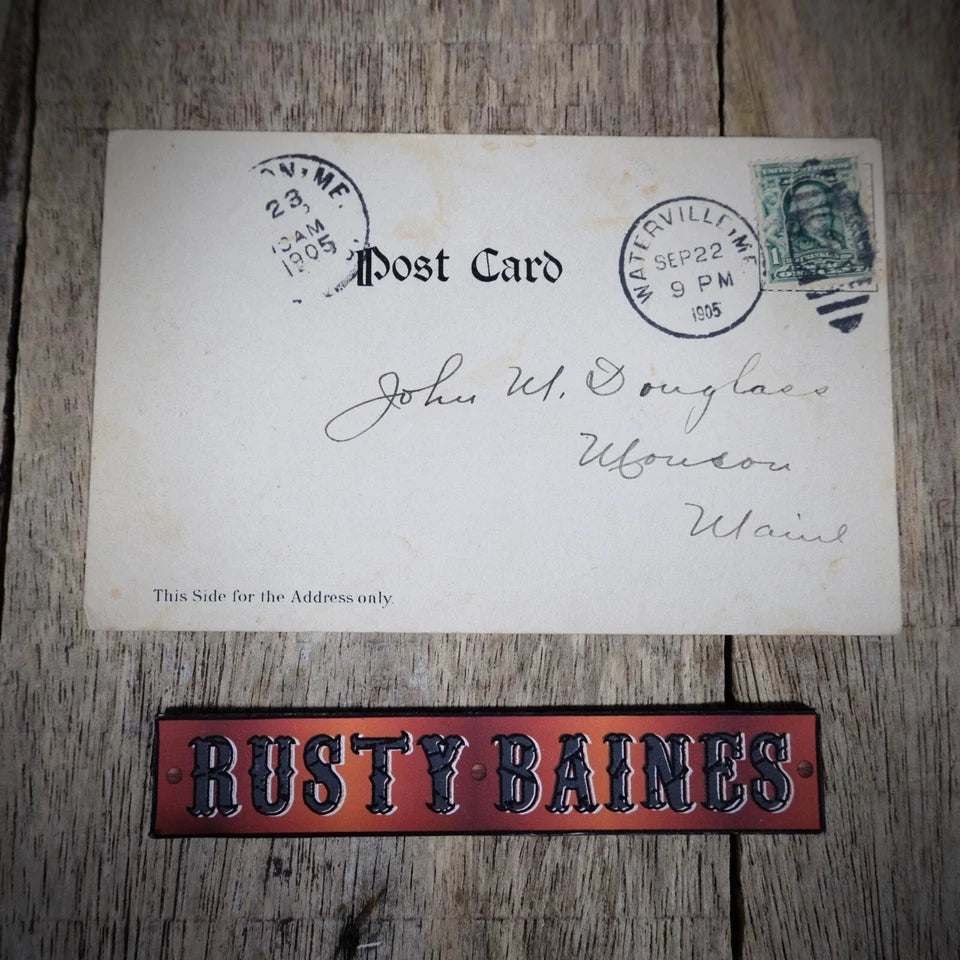 ON, ME.
23
10AM
1905
Post Card
WATERVILLE, ME.
SEP 22
9 PM
1905
1
John M. Douglass
Monson
Maine
This Side for the Address only.
RUSTY BAINES